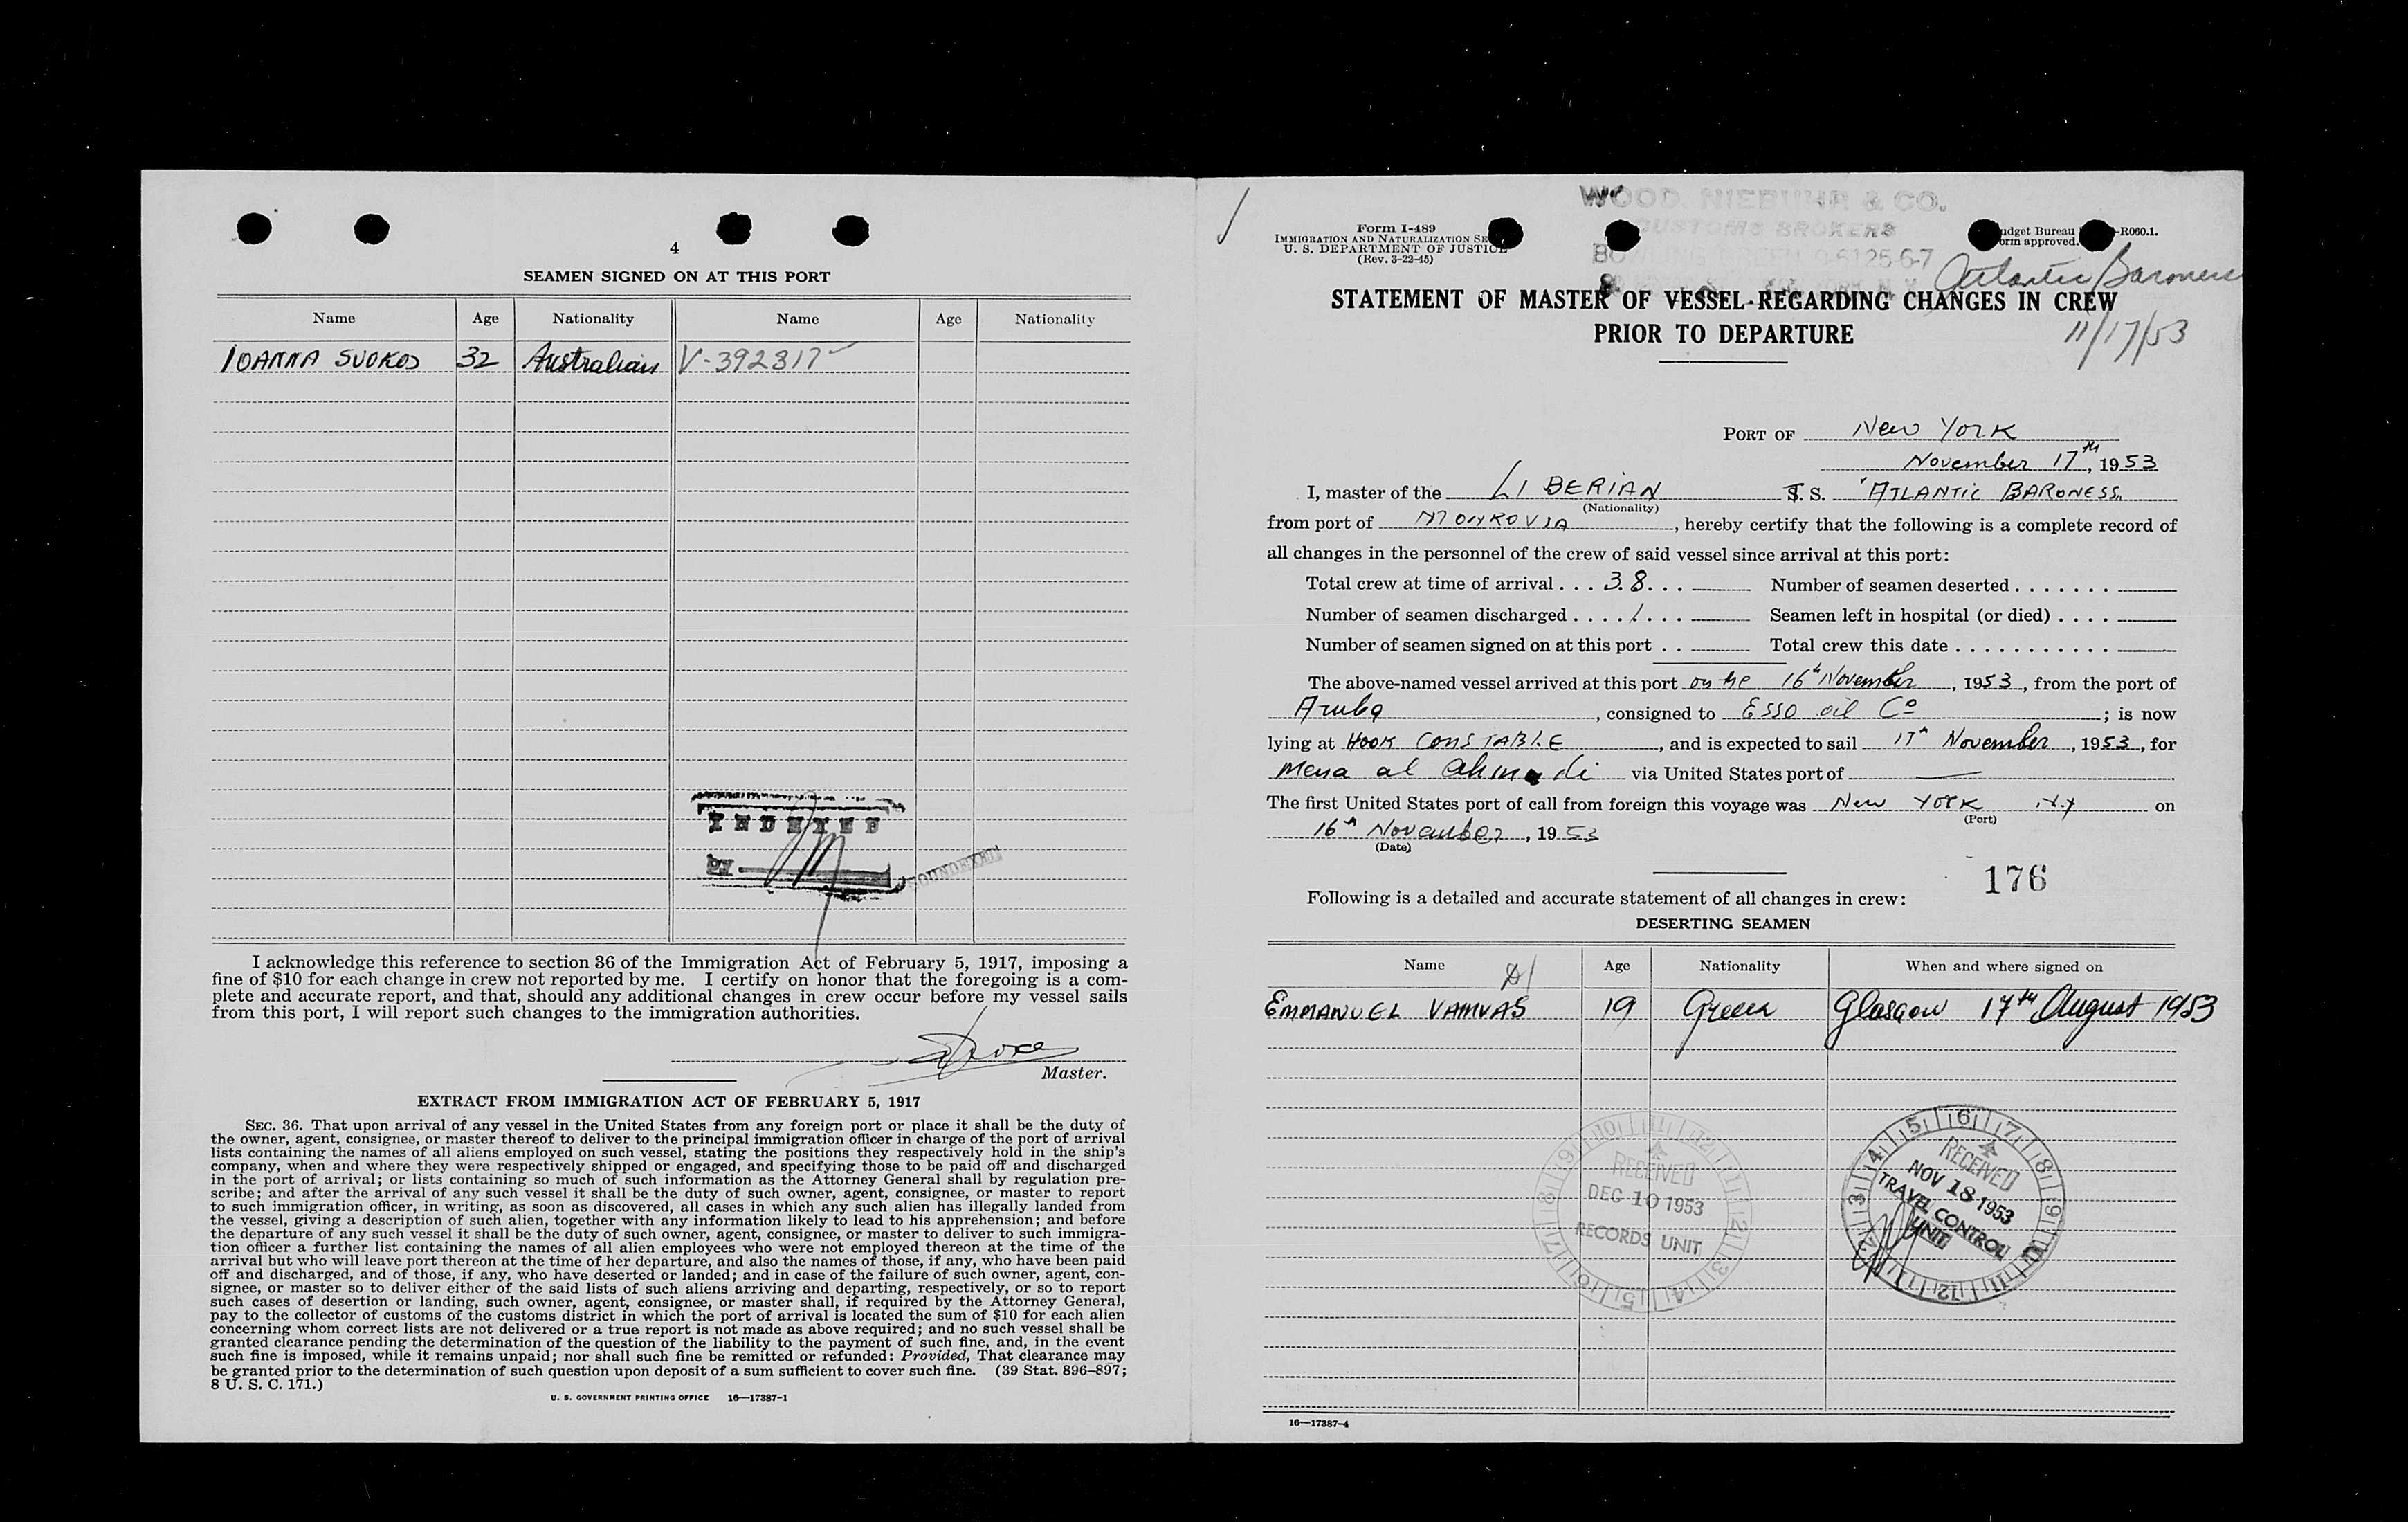 4
SEAMEN SIGNED ON AT THIS PORT
Name Age Nationality Name Age Nationality
IOANNA SUOKOS 32 Australian V-392317
INDEXED
BY
SOUNDEXED
I acknowledge this reference to section 36 of the Immigration Act of February 5, 1917, imposing a
fine of $10 for each change in crew not reported by me. I certify on honor that the foregoing is a com-
plete and accurate report, and that, should any additional changes in crew occur before my vessel sails
from this port, I will report such changes to the immigration authorities.
Master.
EXTRACT FROM IMMIGRATION ACT OF FEBRUARY 5, 1917
SEC. 36. That upon arrival of any vessel in the United States from any foreign port or place it shall be the duty of
the owner, agent, consignee, or master thereof to deliver to the principal immigration officer in charge of the port of arrival
lists containing the names of all aliens employed on such vessel, stating the positions they respectively hold in the ship's
company, when and where they were respectively shipped or engaged, and specifying those to be paid off and discharged
in the port of arrival; or lists containing so much of such information as the Attorney General shall by regulation pre-
scribe; and after the arrival of any such vessel it shall be the duty of such owner, agent, consignee, or master to report
to such immigration officer, in writing, as soon as discovered, all cases in which any such alien has illegally landed from
the vessel, giving a description of such alien, together with any information likely to lead to his apprehension; and before
the departure of any such vessel it shall be the duty of such owner, agent, consignee, or master to deliver to such immigra-
tion officer a further list containing the names of all alien employees who were not employed thereon at the time of the
arrival but who will leave port thereon at the time of her departure, and also the names of those, if any, who have been paid
off and discharged, and of those, if any, who have deserted or landed; and in case of the failure of such owner, agent, con-
signee, or master so to deliver either of the said lists of such aliens arriving and departing, respectively, or so to report
such cases of desertion or landing, such owner, agent, consignee, or master shall, if required by the Attorney General,
pay to the collector of customs of the customs district in which the port of arrival is located the sum of $10 for each alien
concerning whom correct lists are not delivered or a true report is not made as above required; and no such vessel shall be
granted clearance pending the determination of the question of the liability to the payment of such fine, and, in the event
such fine is imposed, while it remains unpaid; nor shall such fine be remitted or refunded: Provided, That clearance may
be granted prior to the determination of such question upon deposit of a sum sufficient to cover such fine. (39 Stat. 896-897;
8 U. S. C. 171.)
U. S. GOVERNMENT PRINTING OFFICE 16—17387-1
WOOD, NIEBUHR & CO.
CUSTOMS BROKERS
BOWLING GREEN 9-6125-6-7
Form I-489
IMMIGRATION AND NATURALIZATION SE
U. S. DEPARTMENT OF JUSTICE
(Rev. 3-22-45)
udget Bureau -R060.1.
orm approved.
Atlantic Baroness
11/17/53
STATEMENT OF MASTER OF VESSEL REGARDING CHANGES IN CREW
PRIOR TO DEPARTURE
PORT OF New York
November 17th, 1953
I, master of the LIBERIAN S. S. "ATLANTIC BARONESS"
(Nationality)
from port of MONROVIA, hereby certify that the following is a complete record of
all changes in the personnel of the crew of said vessel since arrival at this port:
Total crew at time of arrival . . . 38. . . Number of seamen deserted . . . . . . .
Number of seamen discharged . . . . 1 . . . Seamen left in hospital (or died) . . . .
Number of seamen signed on at this port . . Total crew this date . . . . . . . . . . .
The above-named vessel arrived at this port on the 16th November, 1953, from the port of
Aruba, consigned to Esso oil Co; is now
lying at HOOK CONSTABLE, and is expected to sail 17th November, 1953, for
Mena al Ahmadi via United States port of —
The first United States port of call from foreign this voyage was New York N.Y on
(Port)
16th November, 1953
(Date)
176
Following is a detailed and accurate statement of all changes in crew:
DESERTING SEAMEN
Name Age Nationality When and where signed on
EMMANUEL VAMVAS 19 Greek Glasgow 17th August 1953
RECEIVED
DEC 10 1953
RECORDS UNIT
RECEIVED
NOV 18 1953
TRAVEL CONTROL
UNIT
16—17387-4